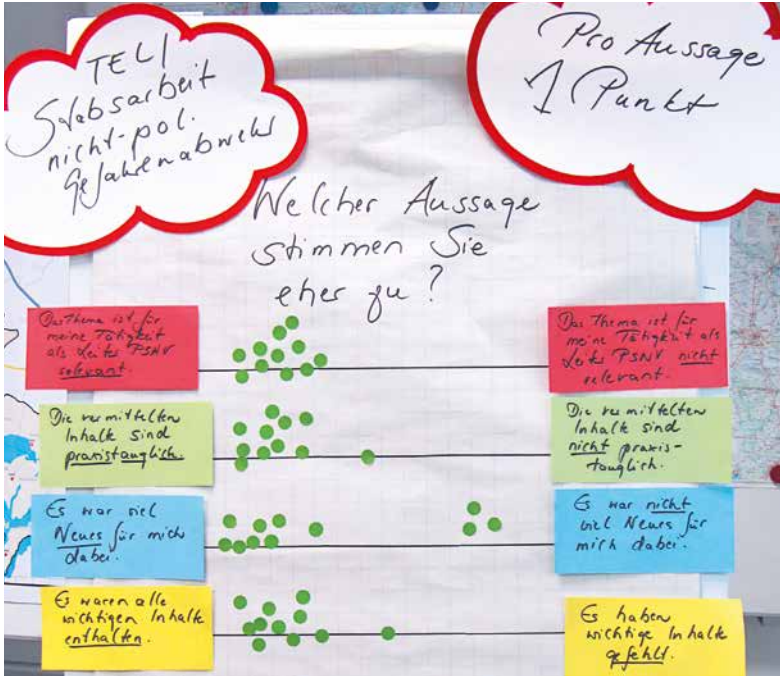 TEL/
Stabsarbeit
nicht-pol.
Gefahrenabwehr
Pro Aussage
1 Punkt
Welcher Aussage
stimmen Sie
eher zu?
Das Thema ist für
meine Tätigkeit
als Leiter PSNV
relevant.
Das Thema ist für
meine Tätigkeit als
Leiter PSNV nicht
relevant.
Die vermittelten
Inhalte sind
praxistauglich.
Die vermittelten
Inhalte sind
nicht praxis-
tauglich.
Es war viel
Neues für mich
dabei.
Es war nicht
viel Neues für
mich dabei.
Es waren alle
wichtigen Inhalte
enthalten.
Es haben
wichtige Inhalte
gefehlt.